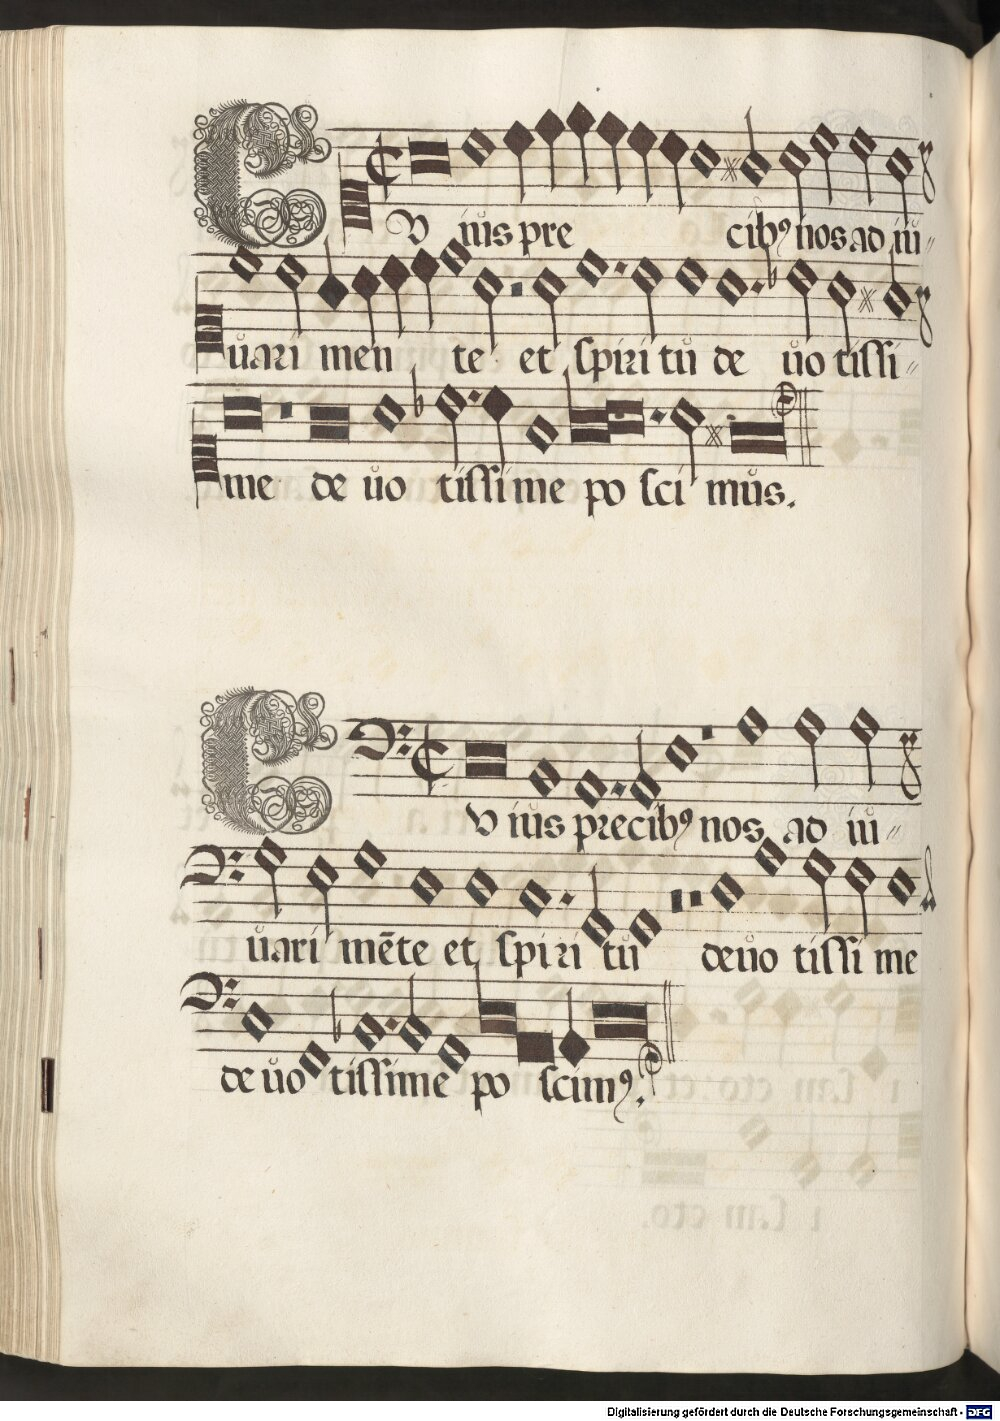 CV iŭs pre cibꝰ nos ad iŭ
ŭari men te et spiri tŭ de ŭo tissi
me de ŭo tissime po sci mŭs.
CV iŭs precibꝰ nos ad iŭ
ŭari mēte et spiri tŭ deŭo tissi me
de ŭo tissime po scimꝰ.
Digitalisierung gefördert durch die Deutsche Forschungsgemeinschaft - DFG